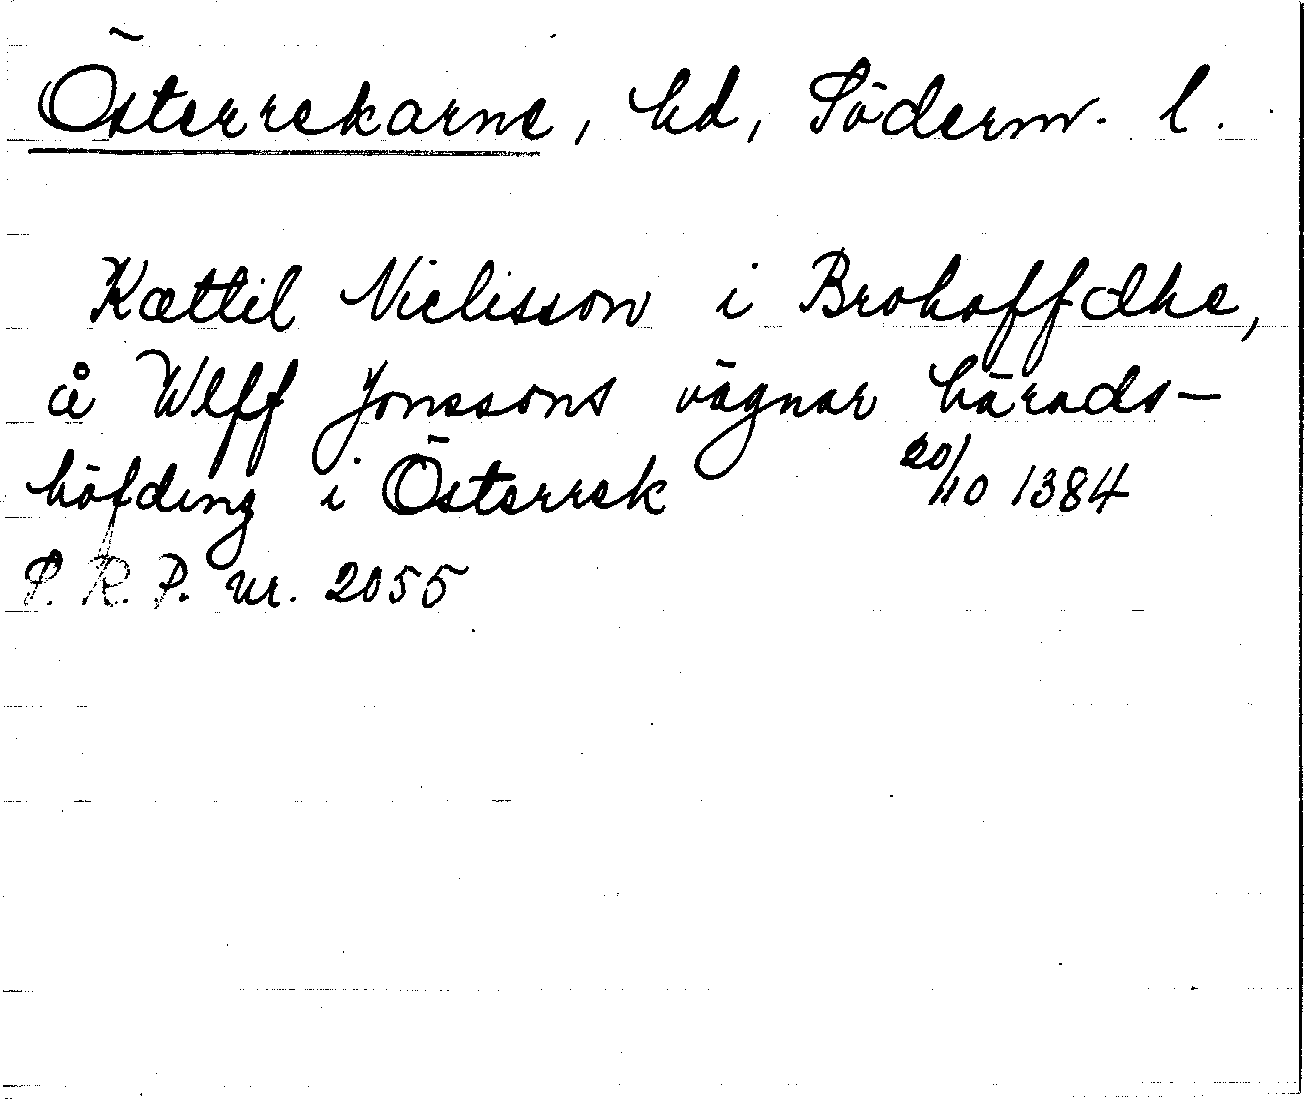 Österrekarne, hd, Söderm. l.
Kættil Nielisson i Brohoffdhe,
å Wlff Jonssons vägnar härads-
höfding i Österrek 20/10 1384
S. R. P. nr. 2055